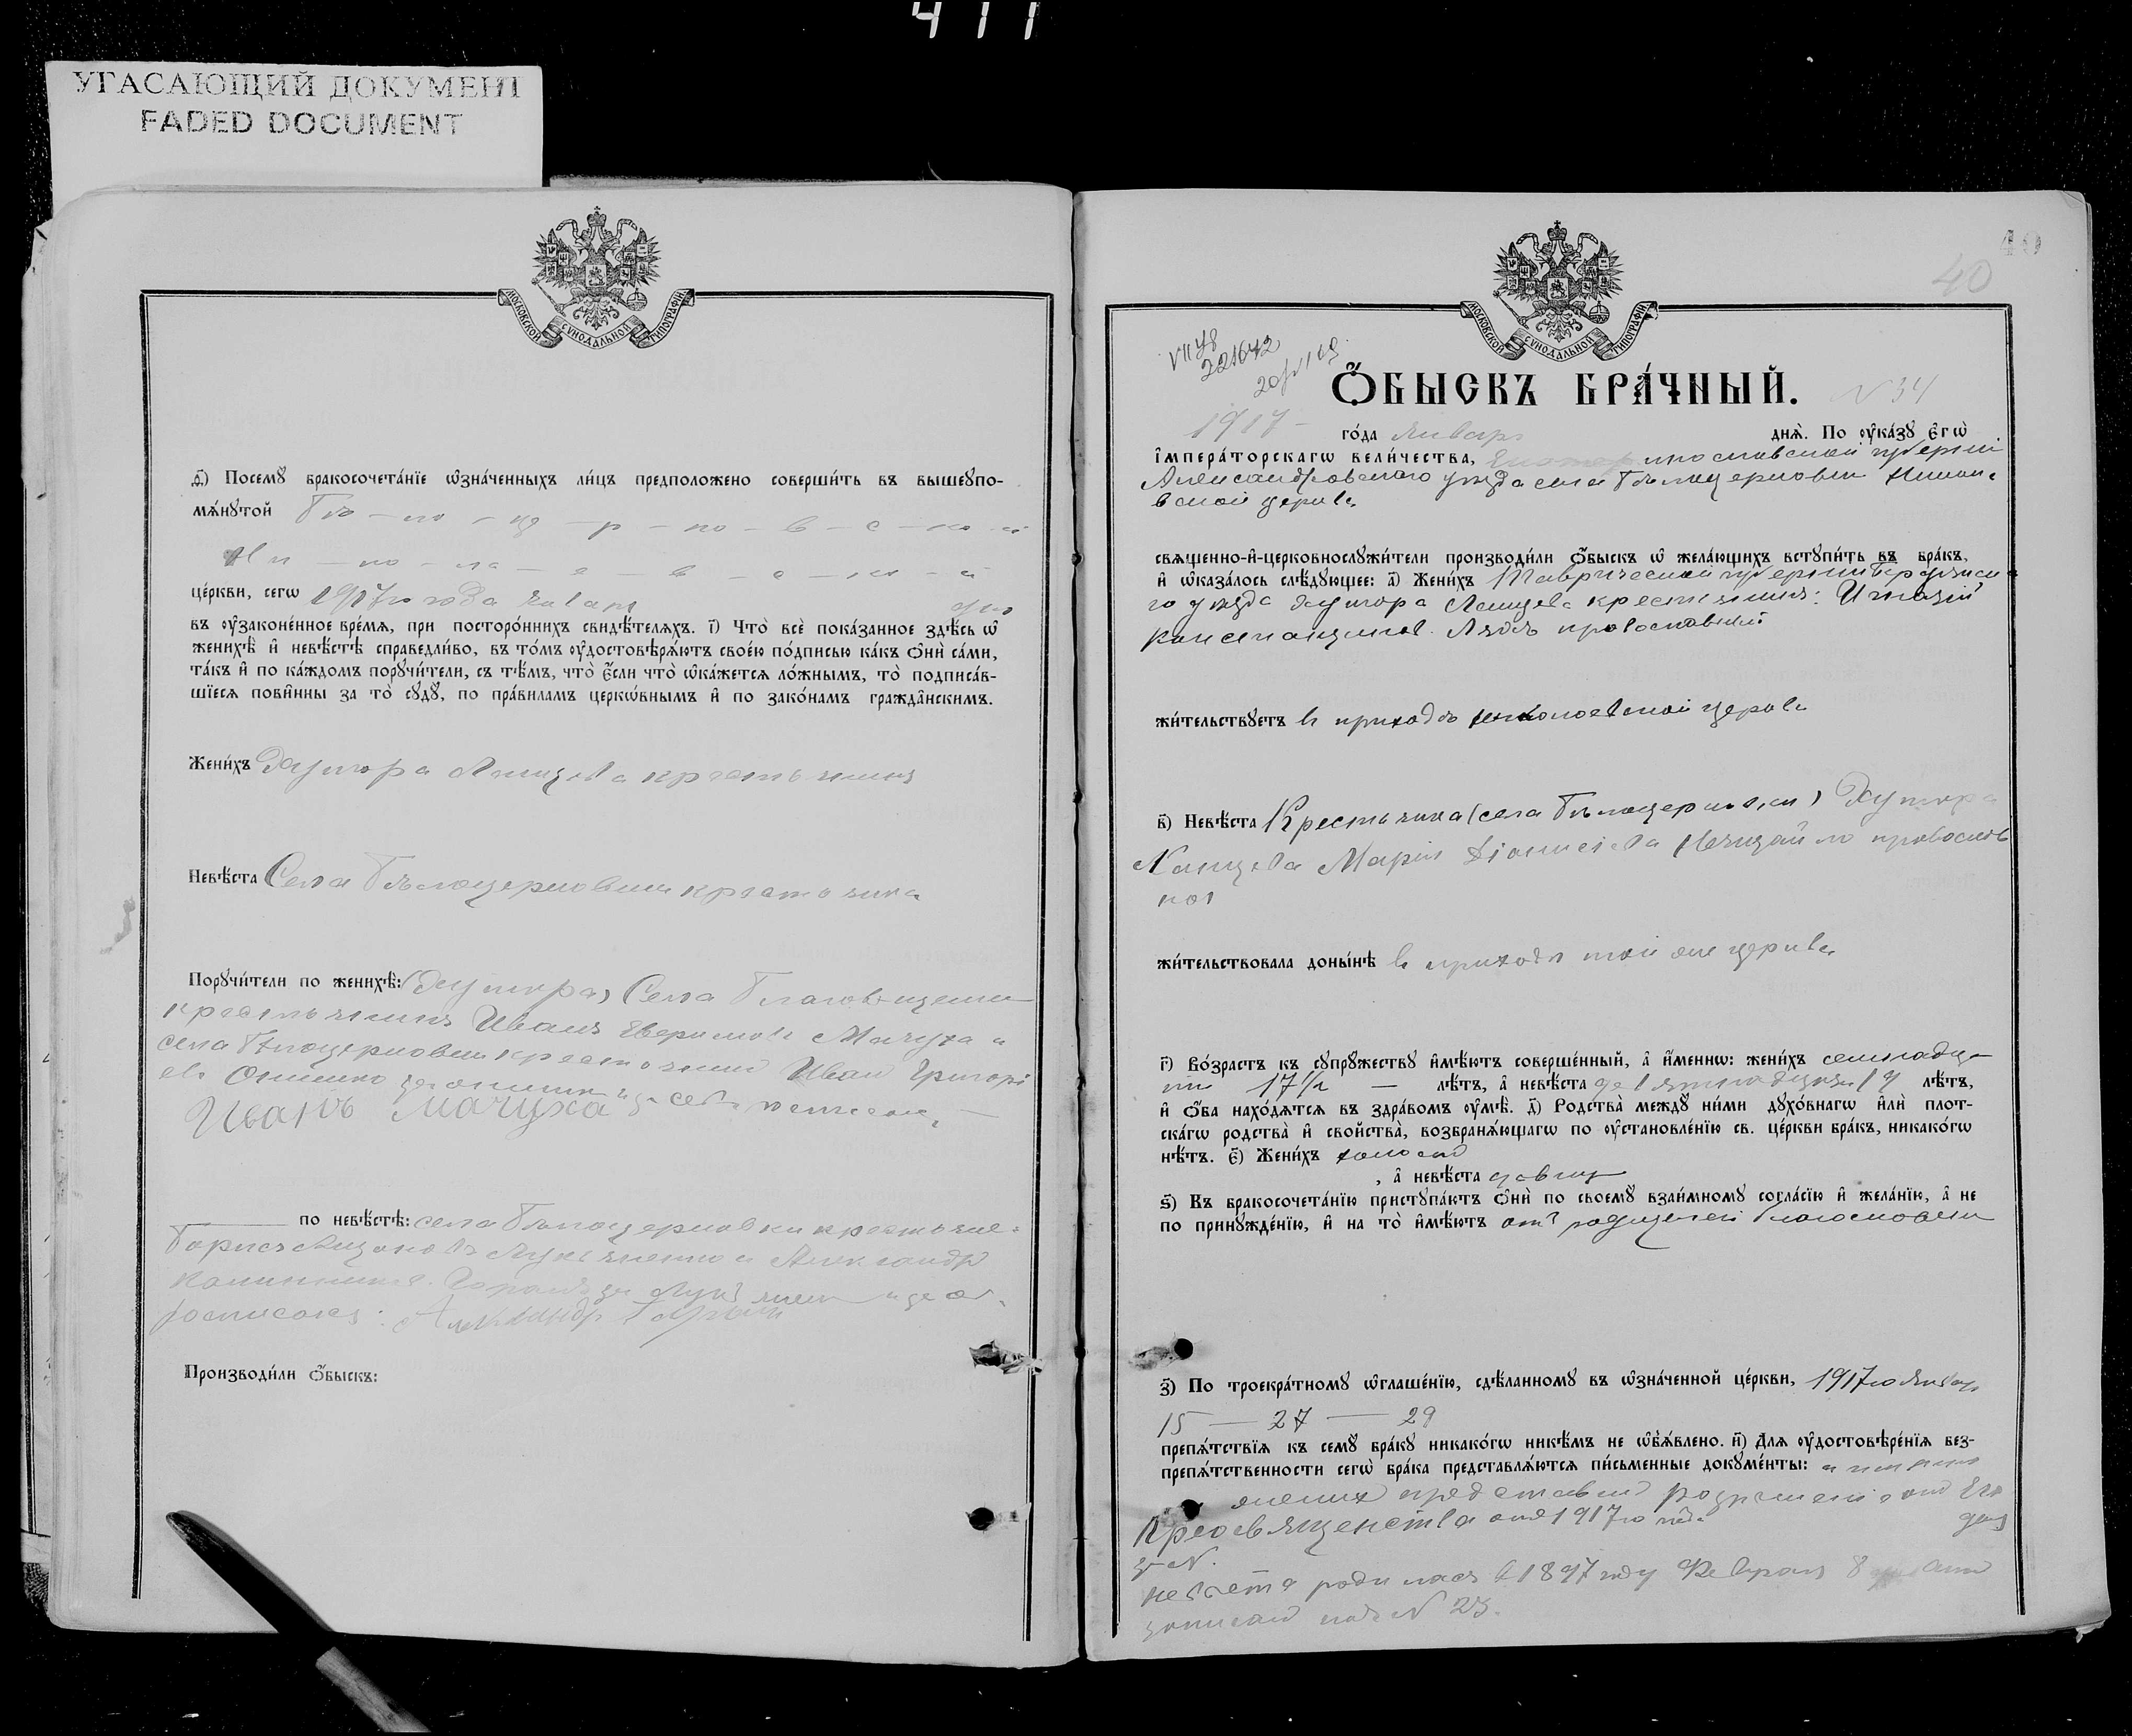 411
УГАСАЮЩИЙ ДОКУМЕНТ
FADED DOCUMENT
МОСКОВСКОЙ СѴНОДАЛЬНОЙ ТИПОГРАФІИ
ѳ҃) Посемꙋ бракосочета́нїе ѡ҆зна́ченныхъ ли́цъ предположено соверши́ть въ вышеꙋпо-
мѧ́нꙋтой Бѣ - ло - це - р - ко - в - с - ко - й
Ни - ко - ла - е - в - с - ко - й
це́ркви, сегѡ 1917го года Январ дня
въ ᲂу҆законе́нное вре́мѧ, при посторо́ннихъ свидѣ́телѧхъ. і҃) Что̀ всѐ пока́занное здѣ́сь ѡ
женихѣ̀ и҆ невѣ́стѣ справедли́во, въ то́мъ ᲂу҆достовѣрѧ́ютъ свое́ю по́дписью ка́къ ѻ҆нѝ са́ми,
та́къ и҆ по ка́ждомъ порꙋчи́тели, съ тѣ́мъ, что̀ є҆́сли что̀ ѡ҆ка́жетсѧ ло́жнымъ, то̀ подписа́в-
шїесѧ пови́нны за то̀ сꙋдꙋ̀, по пра́виламъ церкѡ́внымъ и҆ по зако́намъ гражда̂нскимъ.
Жени́хъ Хутора Канцева крестьянинъ
Невѣ́ста Села Бѣлоцерковки крестьянка
Порꙋчи́тели по женихѣ̀: (Хутора) Села Благовещенки
крестьянинъ Иванъ Мачуха и
села Бѣлоцерковки крестьянинъ Иван Григорі
ев
Иванъ Мачуха и за себя
по невѣ́стѣ: села Бѣлоцерковки крестьяне:
Борисъ Лукьяненко и Александр
росписался: Александр
Производи́ли ѻ҆́быскъ:
40
40
МОСКОВСКОЙ СѴНОДАЛЬНОЙ ТИПОГРАФІИ
VII 48
221642
Ѻ҆́БЫСКЪ БРА́ЧНЫЙ. N 34
1917 - го́да Январ днѧ̀. По ᲂу҆ка́зꙋ є҆гѡ̀
і҆мпера́торскагѡ вели́чества, Екатеринославской губерніи
Александровского уезда села Бѣлоцерковки Никола
вской церкви
свѧще́нно-и҆-церковнослꙋжи́тели производи́ли ѻ҆́быскъ ѡ жела́ющихъ встꙋпи́ть въ бра́къ,
и҆ ѡ҆каза́лось слѣ́дꙋющее: а҃) Жени́хъ Таврической губерніи Бердянска
го уезда хутора Канцева крестьянинъ: Игнатій
Константинов. Лядъ православный
жи́тельствꙋетъ в приходѣ николаевской церкви
в҃) Невѣ́ста Крестьянка (села Бѣлоцерковки) Хутора
Канцева Марія Діонисіева Нечипайло православ
ная
жи́тельствовала доны́нѣ в приходѣ той же церкви
г҃) Во́зрастъ къ сꙋпрꙋ́жествꙋ и҆мѣ́ютъ соверше́нный, а҆ и҆́меннѡ: жени́хъ семнадца
ти 17½ — лѣ́тъ, а҆ невѣ́ста девятнадцати 19 лѣ́тъ,
и҆ ѻ҆́ба нахо́дѧтсѧ въ здра́вомъ ᲂу҆мѣ̀. д҃) Родства̀ междꙋ̀ ни́ми дꙋхо́внагѡ и҆лѝ плот-
ска́гѡ родства̀ и҆ свойства̀, возбранѧ́ющагѡ по ᲂу҆становле́нїю св. це́ркви бра́къ, никако́гѡ
нѣ́тъ. є҃) Жени́хъ холост
, а҆ невѣ́ста девица
ѕ҃) Въ бракосочета́нїю пристꙋпа́ютъ ѻ҆нѝ по своемꙋ взаи́мномꙋ согла́сїю и҆ жела́нїю, а҆ не
по принꙋжде́нїю, и҆ на то̀ и҆мѣ́ютъ отъ родителей благословеніе
з҃) По троекра́тномꙋ ѡ҆глаше́нїю, сдѣ́ланномꙋ въ ѡ҆зна́ченной це́ркви, 1917го Январ
15 — 27 — 29
препѧ́тствїѧ къ семꙋ̀ бра́кꙋ никако́гѡ никѣ́мъ не ѡ҆б̾ѧ́влено. и҃) Длѧ ᲂу҆достовѣре́нїѧ без-
препѧ́тственности сегѡ̀ бра́ка представлѧ́ютсѧ пи́сьменные докꙋме́нты:
жених представил разрешеніе от Его
Преосвященства от 1917го года дня
за N.
невѣста родилась в 1897 году Февраля 8 дня акт
записан под N 23.